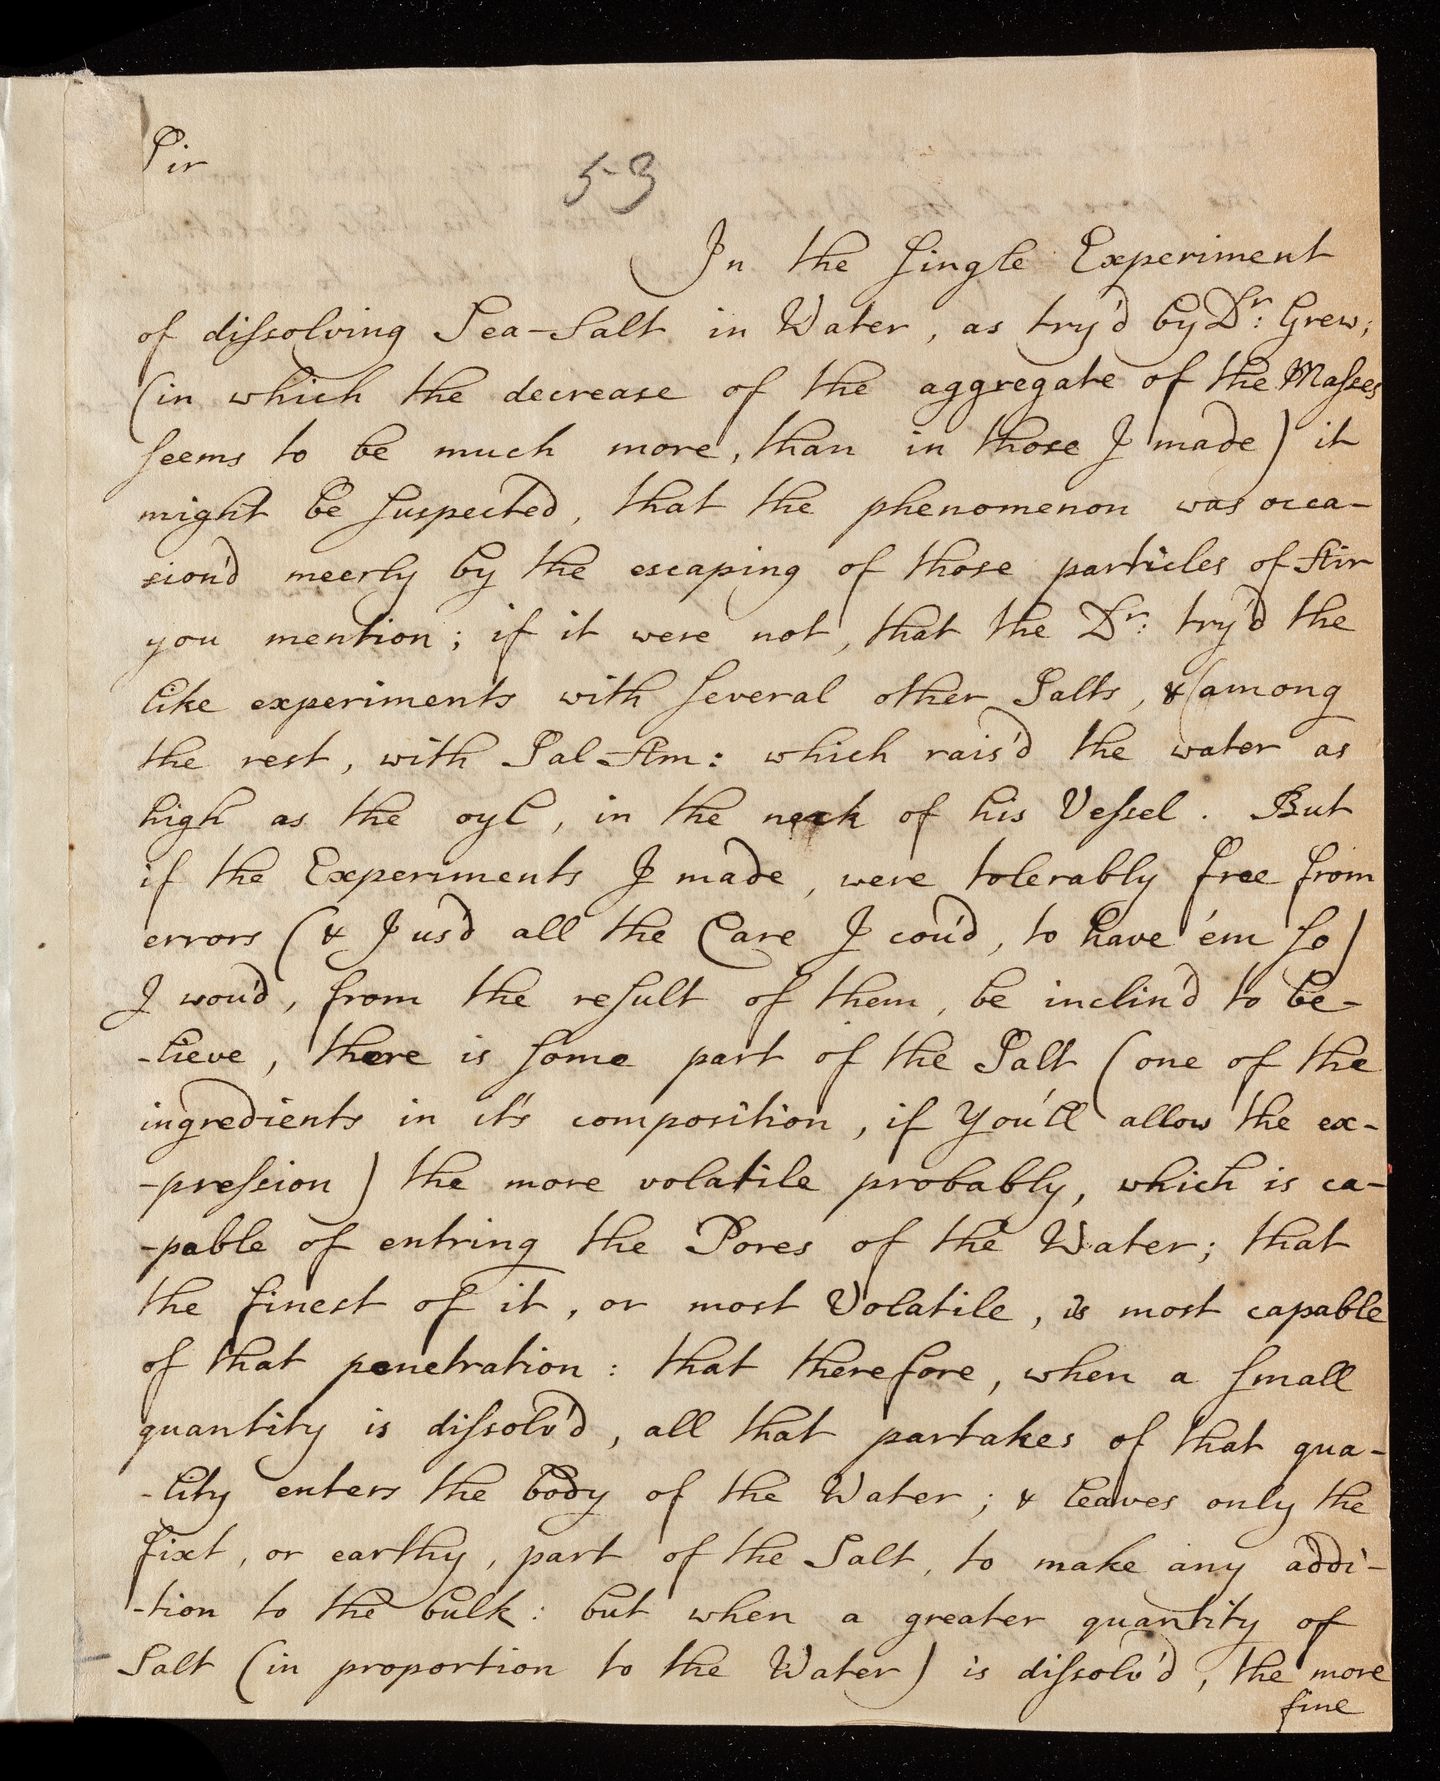 Sir
53
In the single Experiment
of dissolving Sea-Salt in Water, as try'd by Dr: Grew;
(in which the decrease of the aggregate of the Masses
seems to be much more, than in those I made) it
might be suspected, that the phenomenon was occa-
sion'd meerly by the escaping of those particles of Air
you mention; if it were not, that the Dr: try'd the
like experiments with several other Salts, & (among
the rest, with Sal-Am: which rais'd the water as
high as the oyl, in the neck of his Vessel. But
if the Experiments I made, were tolerably free from
errors (& I us'd all the Care I cou'd, to have 'em so)
I wou'd, from the result of them, be inclin'd to be-
-lieve, there is some part of the Salt (one of the
ingredients in it's composition, if You'll allow the ex-
-pression) the more volatile probably, which is ca-
-pable of entring the Pores of the Water; that
the finest of it, or most Volatile, is most capable
of that penetration: that therefore, when a small
quantity is dissolv'd, all that partakes of that qua-
-lity enters the body of the Water; & leaves only the
fixt, or earthy, part of the Salt, to make any addi-
-tion to the bulk: but when a greater quantity of
Salt (in proportion to the Water) is dissolv'd, the more
fine